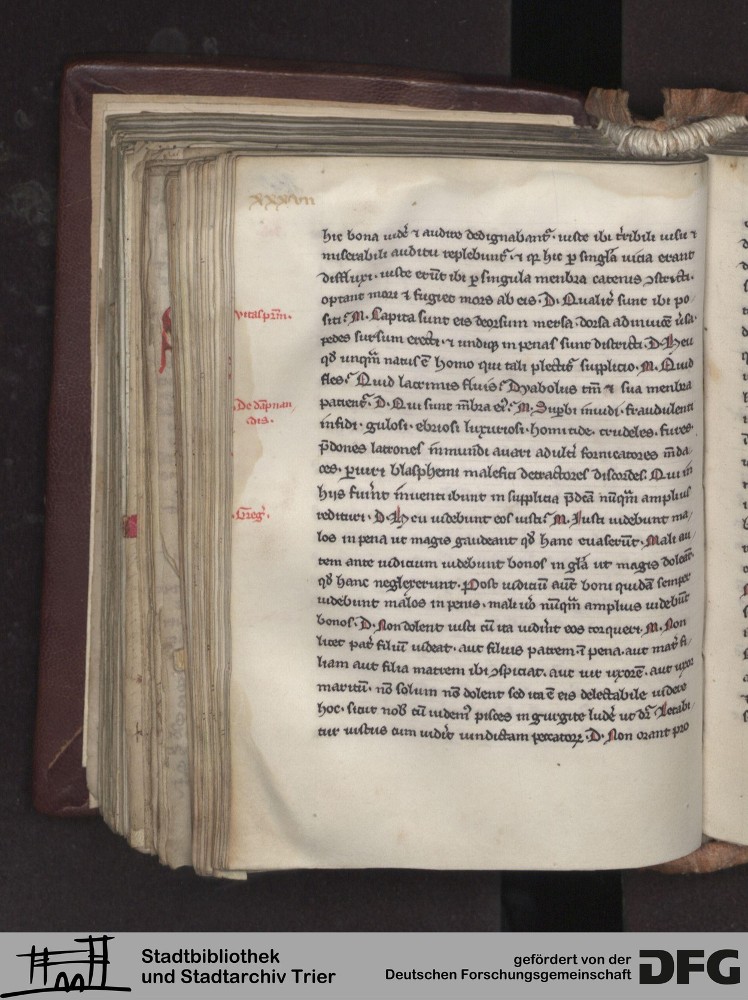 xxxvii
hic bona uidē ⁊ audire dedignabant᷑. iuste ibi t̄ribili uisu ⁊
miserabili auditu replebunt᷑. ⁊ q̄ hic ꝑ singl̄a uicia erant
diffluxi. iuste erūt ibi ꝑ singula menbra catenis ɔstricti.
optant mori ⁊ fugiet mors ab eis. D. Qualit᷑ sunt ibi po
vitasp̄rm̄.
siti. M. Capita sunt eis deorsum mersa. dorsa adinuicē ūsa.
pedes sursum erecti. ⁊ undiq̄ in penas sunt districti. D. Heu
qđ unqm̄ natus ē homo qui tali plectit᷑ supplicio. M. Quid
fles. Quid lacrimis fluis. Dyabolus tm̄ ⁊ sua menbra
De dāpnan
dis.
patient᷑. D. Qui sunt m̄bra ei᷒. M. Supbi inuidi. fraudulenti
infidi. gulosi. ebriosi luxuriosi. homicide. crudeles. fures.
p̄dones latrones inmundi auari adult̄i fornicatores m̄da
ces. ꝑiuri blasphemi malefici detractores discordes. Qui in
hijs fuīnt inuenti ibunt in supplicia p̄dc̄a nūqm̄ amplius
Greg᷑.
redituri. D. Heu uidebunt eos iusti. M. Iusti uidebunt ma
los in pena ut magis gaudeant qđ hanc euaserūt. Mali au
tem ante iudicium uidebunt bonos in gl̄a ut magis doleāt.
qđ hanc neglexerunt. Post iudiciū aut̄ boni quidā semper
uidebunt malos in penis. mali ū̄o nūqm̄ amplius uidebūt
bonos. D. Non dolent iusti cū ita uidīnt eos torqueri. M. Non
licet pat᷑ filiū uideat. aut filius patrem ī pena. aut mat᷑ fi
liam aut filia matrem ibi ɔspiciat. aut uir uxorē. aut uxor
maritū. nō solum nō dolent sed ita ē eis delectabile uidere
hoc. sicut nob᷒ cū uidem᷒ pisces in gurgite ludē ut dr̄. Letabi
tur iustus cum uidīt uindictam peccatoꝝ. D. Non orant pro
Stadtbibliothek
und Stadtarchiv Trier
gefördert von der
Deutschen Forschungsgemeinschaft
DFG